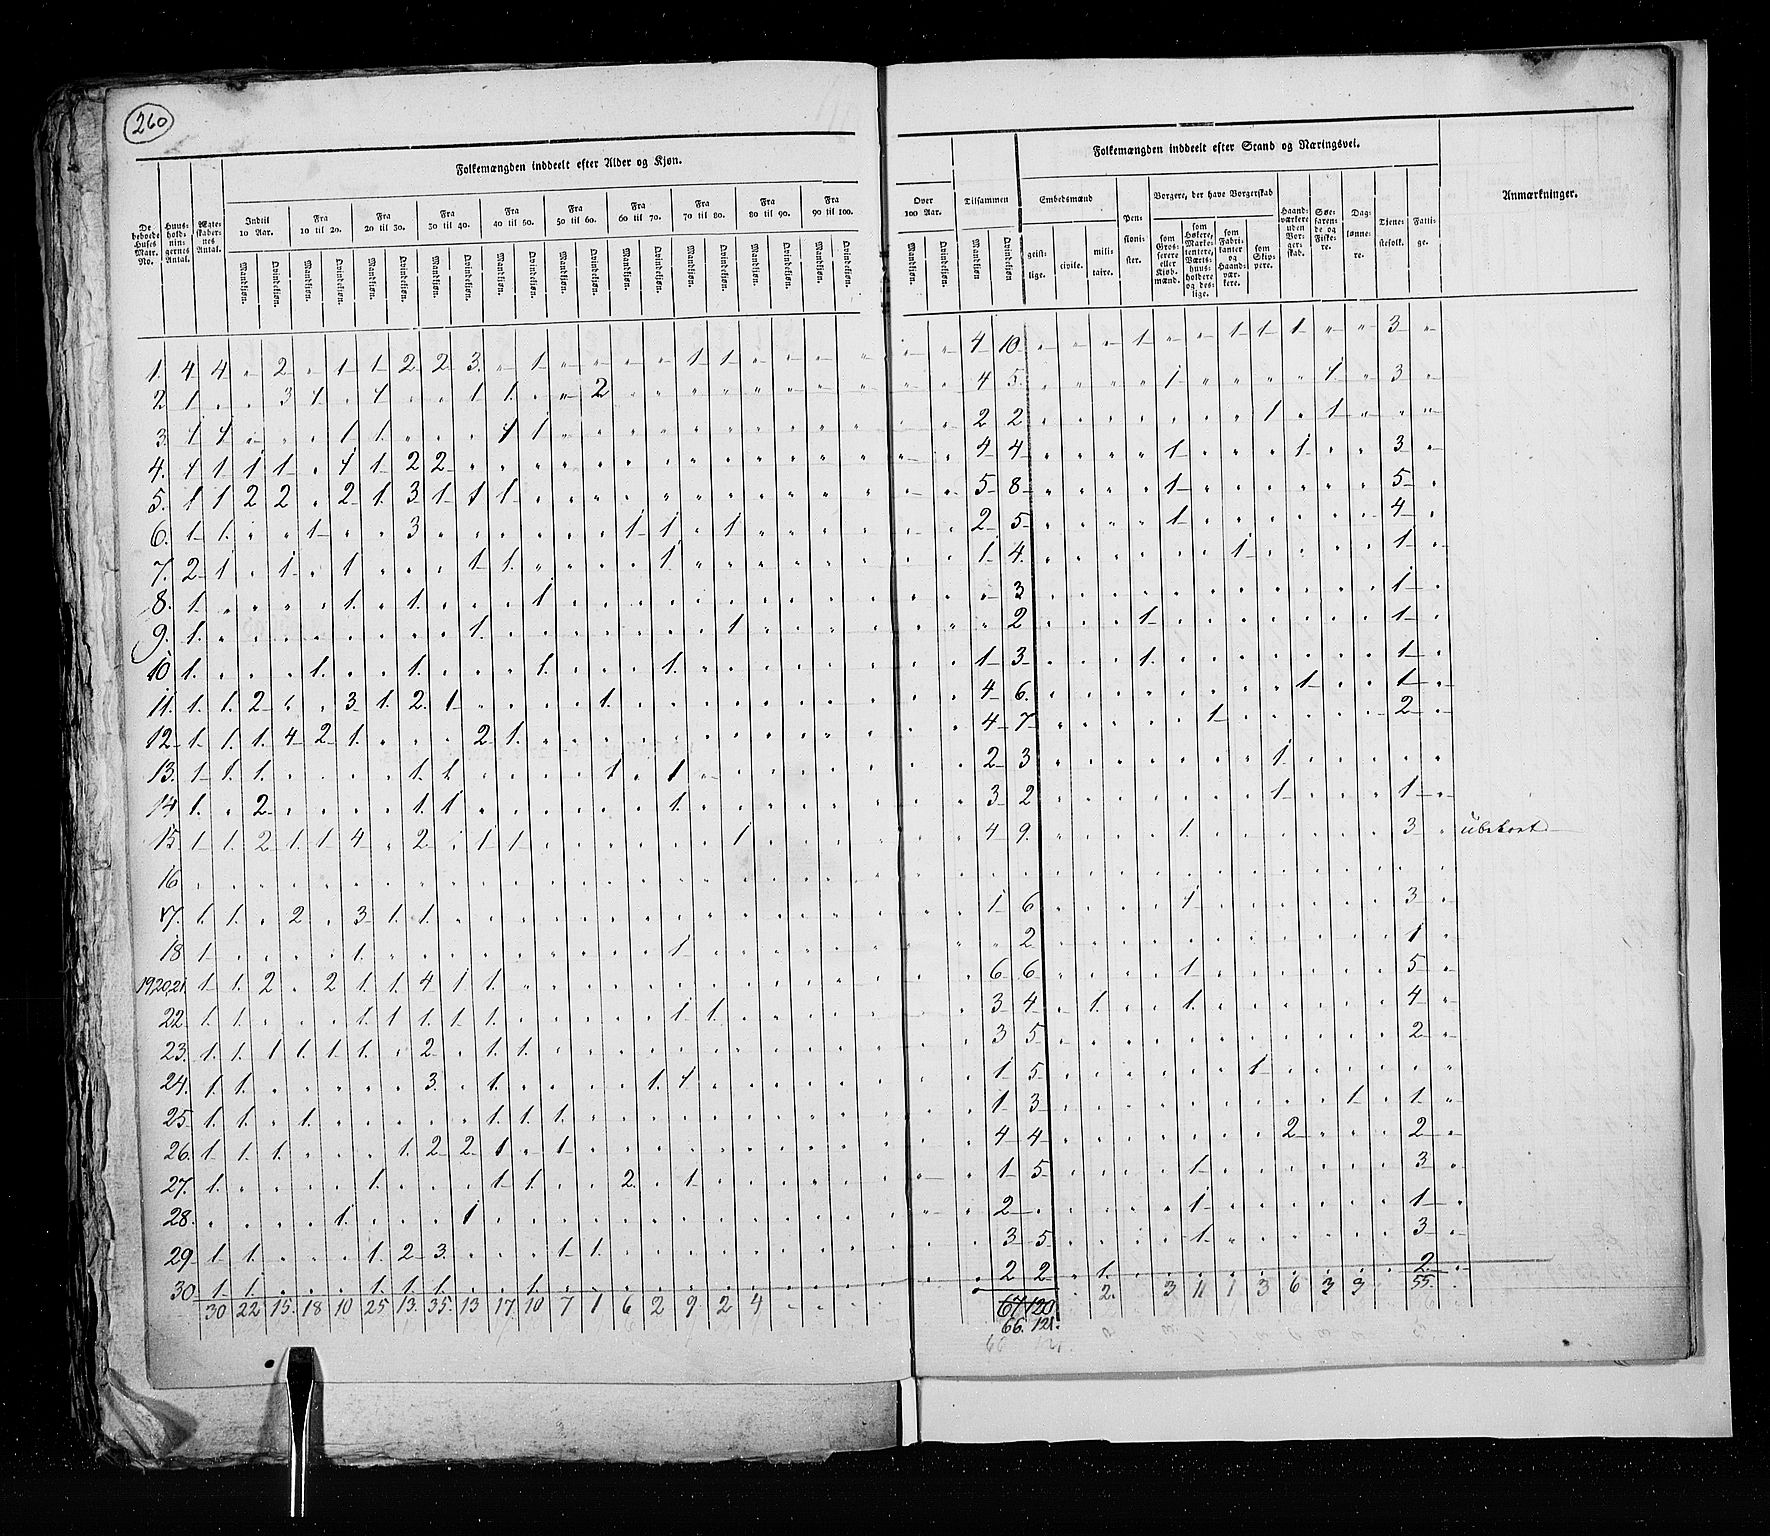 260
Folkemængden inddeelt efter Alder og Kjøn.
Folkemængden inddeelt efter Stand og Næringsvei.
De beboede Huses Matr. No.
Huus- hold- nin- gernes Antal.
Ægte- skaber- nes Antal.
Indtil 10 Aar.
Fra 10 til 20.
Fra 20 til 30.
Fra 30 til 40.
Fra 40 til 50.
Fra 50 til 60.
Fra 60 til 70.
Fra 70 til 80.
Fra 80 til 90.
Fra 90 til 100.
Over 100 Aar.
Tilsammen
Mandkjøn. Qvindekjøn.
Embedsmænd
geist- lige.
civile.
mili- taire.
Pen- sioni- ster.
Borgere, der have Borgerskab
som Gros- serere eller Kjøb- mænd.
som Høkere, Marke- tentere, Værts- huus- holdere og des- lige.
som Fabri- kanter og Haand- vær- kere.
som Skip- pere.
Haand- værkere uden Bor- ger- skab.
Søe- farende og Fiske- re.
Dag- lønne- re.
Tjene- stefolk.
Fatti- ge.
Anmærkninger.
1. 4 4 " 2 " 1 1 2 2 3 " 1 " " " " 1 1 " " " " " " 4 10 " " " 1 " " 1 1 1 " " 3 "
2 1 " " 3 1 " 1 " " 1 1 " " 2 " " " " " " " " " " 4 5 " " " " 1 " " " " 1 " 3 "
3. 1 1 " " " 1 1 " " " 1 1 " " " " " " " " " " " " 2 2 " " " " " " " 1 " 1 " " "
4. 1 1 1 1 " 1 1 2 2 " " " " " " " " " " " " " " " 4 4 " " " " 1 " " " 1 " " 3 "
5. 1 1 2 2 " 2 1 3 1 1 1 " " " " " " " " " " " " " 5 8 " " " " 1 " " " " " " 5 "
6. 1 1 " " 1 " " 3 " " " " " " 1 1 " 1 " " " " " " 2 5 " " " " 1 " " " " " " 4 "
7. 2 1 " 1 " 1 " " " 1 1 " " " " 1 " " " " " " " " 1 4 " " " " " " 1 " " " " 1 "
8. 1 " " " " 1 " 1 " " " 1 " " " " " " " " " " " " " 3 " " " " " " " " " " " 1 "
9. 1 " " " " " " " " 1 " " " " " " " 1 " " " " " " " 2 " " " 1 " " " " " " " 1 "
10 1 " " " 1 " " 1 " " " 1 " " " 1 " " " " " " " " 1 3 " " " 1 " " " " " " " 1 "
11. 1 1 2 " " 3 1 2 1 " " " " 1 " " " " " " " " " " 4 6 " " " " " " " " 1 " " 1 "
12 1 1 1 4 2 1 " " " 2 1 " " " " " " " " " " " " " 4 7 " " " " " 1 " " " " " 2 "
13. 1 1 1 " " " " 1 1 " " " " 1 " 1 " " " " " " " " 2 3 " " " " " " " 1 " " " " "
14 1 " 2 " " " " 1 1 " " " " " " 1 " " " " " " " " 3 2 " " " " " " " 1 " " " 1 "
15 1 1 2 1 1 4 " 2 " 1 1 " " " " " " 1 " " " " " " 4 9 " " " " 1 " " " " " " 3 "
16 " " " " " " " " " " " " " " " " " " " " " " " " " " " " " " " " " " " " " " "
17. 1 1 " 2 " 3 1 1 " " " " " " " " " " " " " " " " 1 6 " " " " 1 " " " " " " 3 "
18 1 " " " " 1 " " " " " " " " " 1 " " " " " " " " " 2 " " " " " " " " " " " 1 "
19,20,21. 1 1 2 " 2 1 1 4 1 1 " " " " " " " " " " " " " " 6 6 " " " " 1 " " " " " " 5 "
22 1 1 " " " 1 1 1 1 1 " " " " " 1 1 " " " " " " " 3 4 " 1 " " 1 " " " " " " 4 "
23. 1 1 1 1 1 1 " 2 " 1 1 " " " " " " " " " " " " " 3 5 " " " " " " " " " " " 2 "
24. 1 1 " " " " " 3 " 1 " " " " 1 1 " " " " " " " " 1 5 " " " " " " 1 " " " " " "
25. 1 1 " 1 " " " " " 1 1 1 " " " " " " " " " " " " 1 3 " " " " " " " " " 1 " 1 "
26. 1 1 1 " " " 1 2 2 1 " 1 " " " " " " " " " " " " 4 4 " " " " " " " 2 " " " 2 "
27. 1 " " " " 1 " " " 1 1 " " 2 " 1 " " " " " " " " 1 5 " " " " 1 " " " " " " 3 "
28. " " " " 1 " " " 1 " " " " " " " " " " " " " " " 2 " " " " " 1 " " " " " " 1 "
29 1 1 " " " 1 2 3 " " " 1 1 " " " " " " " " " " " 3 5 " " " " 1 " " " " " " 3 "
30 1 1 " " " 1 1 1 " " 1 " " " " " " " " " " " " " 2 2 " 1 " " " " " " " " " 2 "
30 22 15 18 10 25 13 35 13 17 10 7 1 6 2 9 2 4 67 120 2 3 11 1 3 6 3 3 55
66. 121.